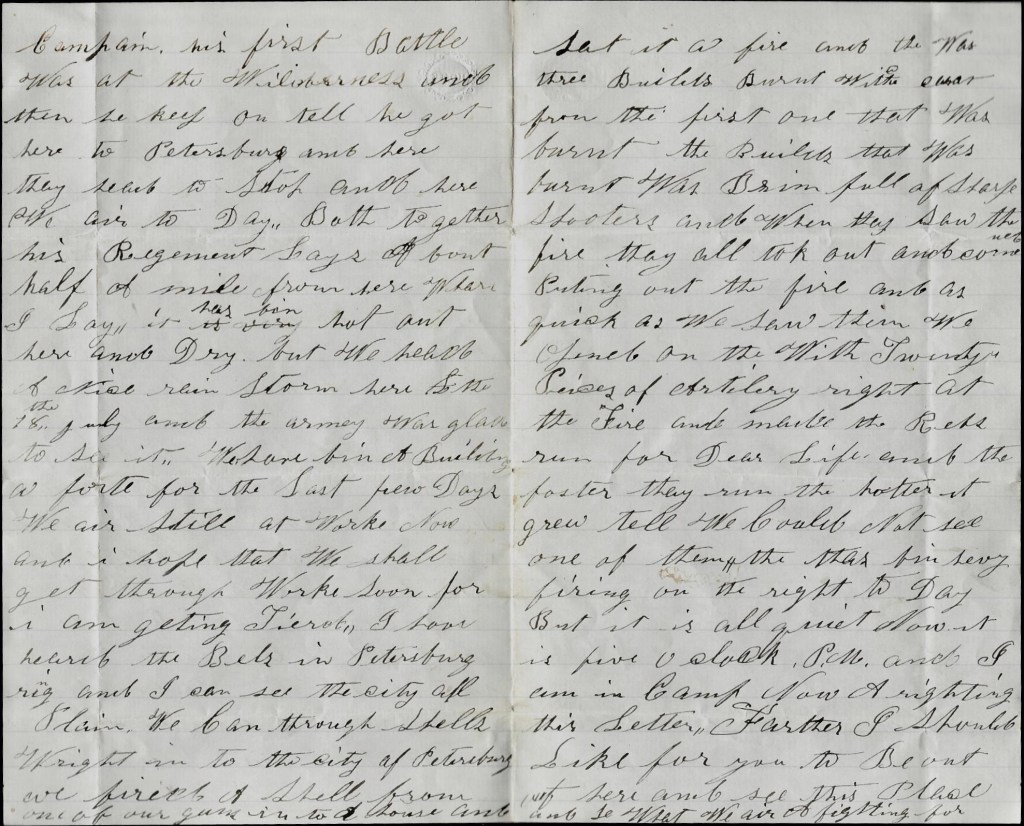 Campain. his first Battle
Was at the Wilderness andb
then he keep on tell he got
here to Petersburg andb here
thay heab to Stop andb here
We air to Day,, Both together
his Regement Lays A bout
half A mile from here Whare
I Lay,, it has bin hot out
here andb Dry. but We heab
A Nice rain Storm here
the 18. July andb the armey Was glad
to see it,, We have bin A Building
a forte for the Last few Days
We air Still at Worke Now
andb i hope that We shall
get through Worke Soon for
i am geting Tierd,, I have
heard the Bels in Petersburg
rig andb I can see the city all
Plain. We Can through Shells
Wright in to the city of Petersburg
we fired A Shell from
one of our guns in to A house andb
sat it a fire andb the Was
three Builds Burnt With
from the first one that Was
burnt the Builds that Was
burnt Was Brim full of Sharp
Shooters andb When thay Saw the
fire thay all tok out andb comencd
Puting out the fire andb as
quick as We Saw them We
Opened on the With Twenty
Peices of Artilery right at
the Fire andb made the Rebs
run for Dear Life. andb the
faster they run the hotter it
grew tell We Could Not see
one of them,, the thas bin hevy
firing on the right to Day
But it is all quiet Now. it
is five o clock. P.M. andb I
am in Camp Now A righting
this Letter,, Farther I Should
Like for you to Be out
here andb see this Place
andb Se What We air A fighting for